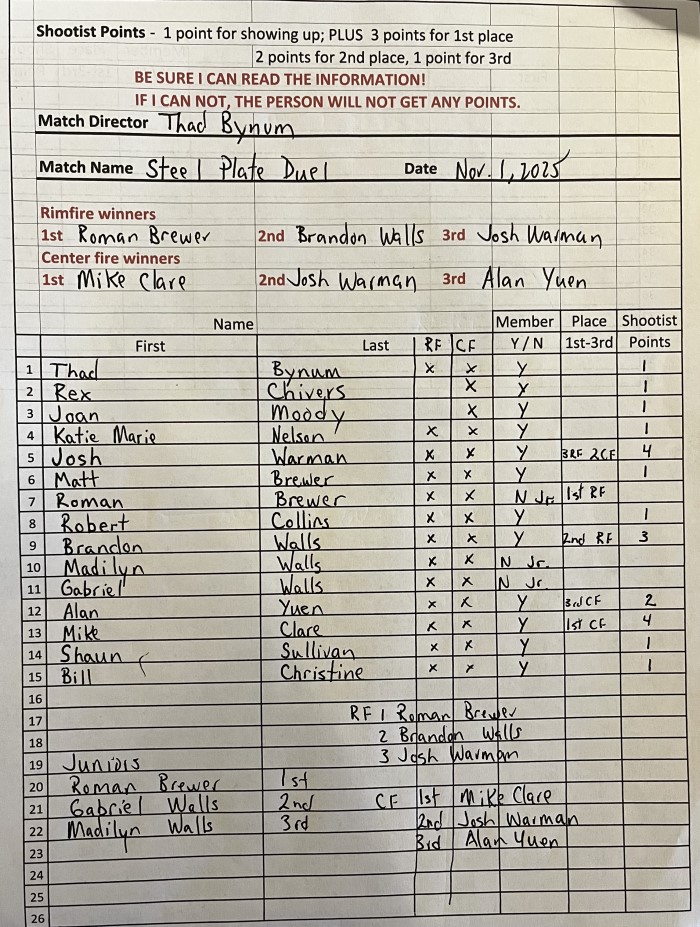 Shootist Points - 1 point for showing up; PLUS 3 points for 1st place
2 points for 2nd place, 1 point for 3rd
BE SURE I CAN READ THE INFORMATION!
IF I CAN NOT, THE PERSON WILL NOT GET ANY POINTS.
Match Director Thad Bynum
Match Name Steel Plate Duel Date Nov. 1, 2025
Rimfire winners
1st Roman Brewer 2nd Brandon Walls 3rd Josh Warman
Center fire winners
1st Mike Clare 2nd Josh Warman 3rd Alan Yuen
Name Member Place Shootist
First Last RF CF Y / N 1st-3rd Points
1 Thad Bynum x x Y 1
2 Rex Chivers x Y 1
3 Joan Moody x Y 1
4 Katie Marie Nelson x x Y 1
5 Josh Warman x x Y 3RF 2CF 4
6 Matt Brewer x x Y 1
7 Roman Brewer x x N Jr. 1st RF
8 Robert Collins x x Y 1
9 Brandon Walls x x Y 2nd RF 3
10 Madilyn Walls x x N Jr.
11 Gabriel Walls x x N Jr
12 Alan Yuen x x Y 3rd CF 2
13 Mike Clare x x Y 1st CF 4
14 Shaun Sullivan x x Y 1
15 Bill Christine x x Y 1
16
17 RF 1 Roman Brewer
18 2 Brandon Walls
19 Juniors 3 Josh Warman
20 Roman Brewer 1st
21 Gabriel Walls 2nd CF 1st Mike Clare
22 Madilyn Walls 3rd 2nd Josh Warman
23 3rd Alan Yuen
24
25
26